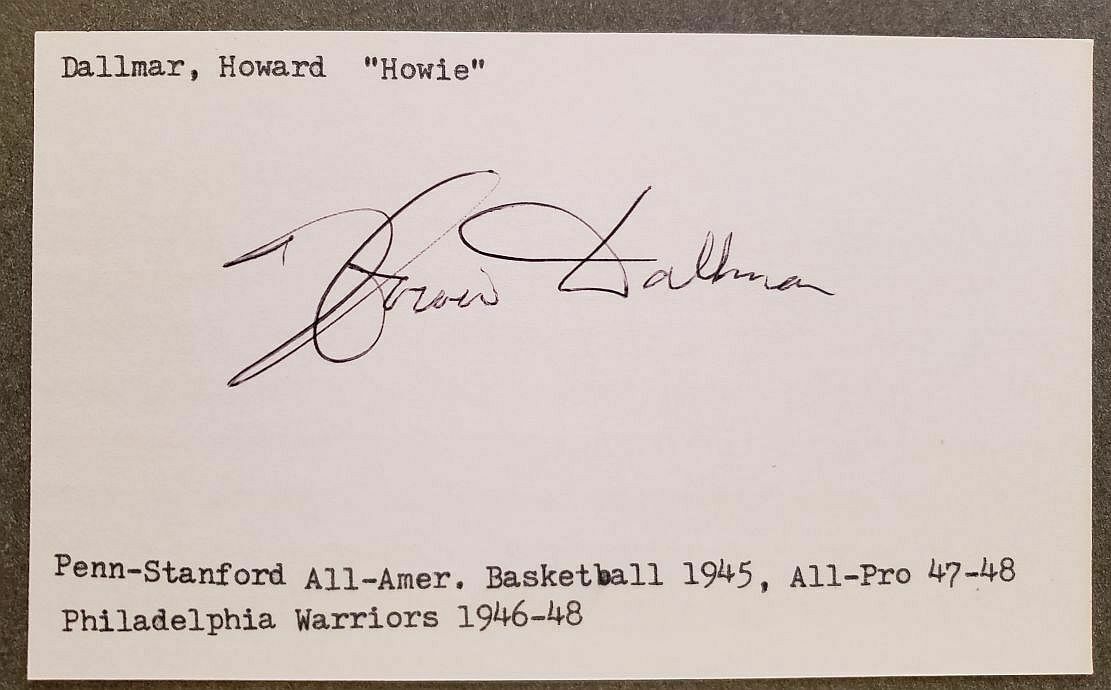 Dallmar, Howard "Howie"
Howie Dallmar
Penn-Stanford All-Amer. Basketball 1945, All-Pro 47-48
Philadelphia Warriors 1946-48